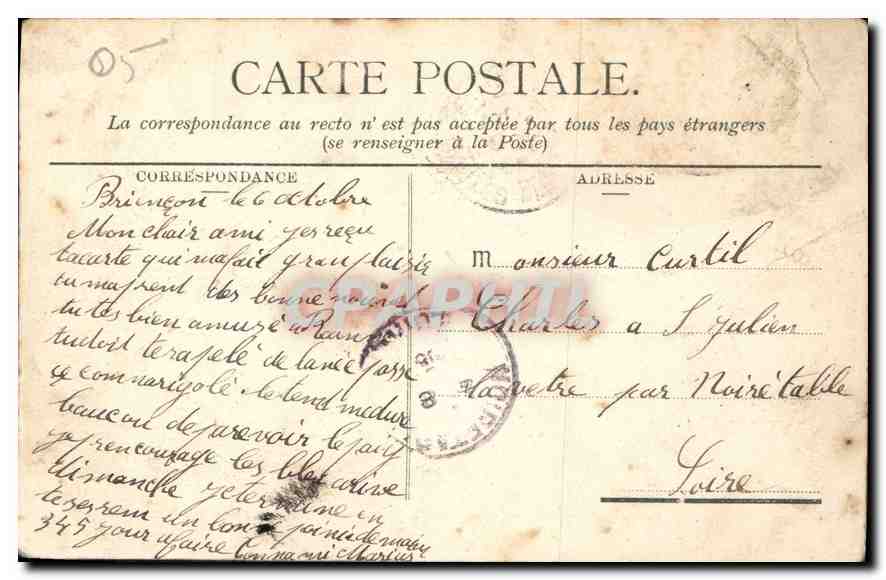 05
CARTE POSTALE.
La correspondance au recto n'est pas acceptée par tous les pays étrangers
(se renseigner à la Poste)
CORRESPONDANCE
ADRESSE
Briençon le 6 octobre
Mon chair ami jerreçu
tacarte qui mafait granplaisir
tumaprent des bonne nouvel
tutes bien amusé a
tudoit terapelé de lanée passé
ce comnarigolé letend medure
baucou deparevoir lepaij
prencourage les bleu arive
dimanche jetermine en
teserrem un bonne poinédemain
345 jour afaire tonnami Marius
Monsieur Curtil
Charles a S Julien
lavetre par Noirétable
Loire
CPAPHIL